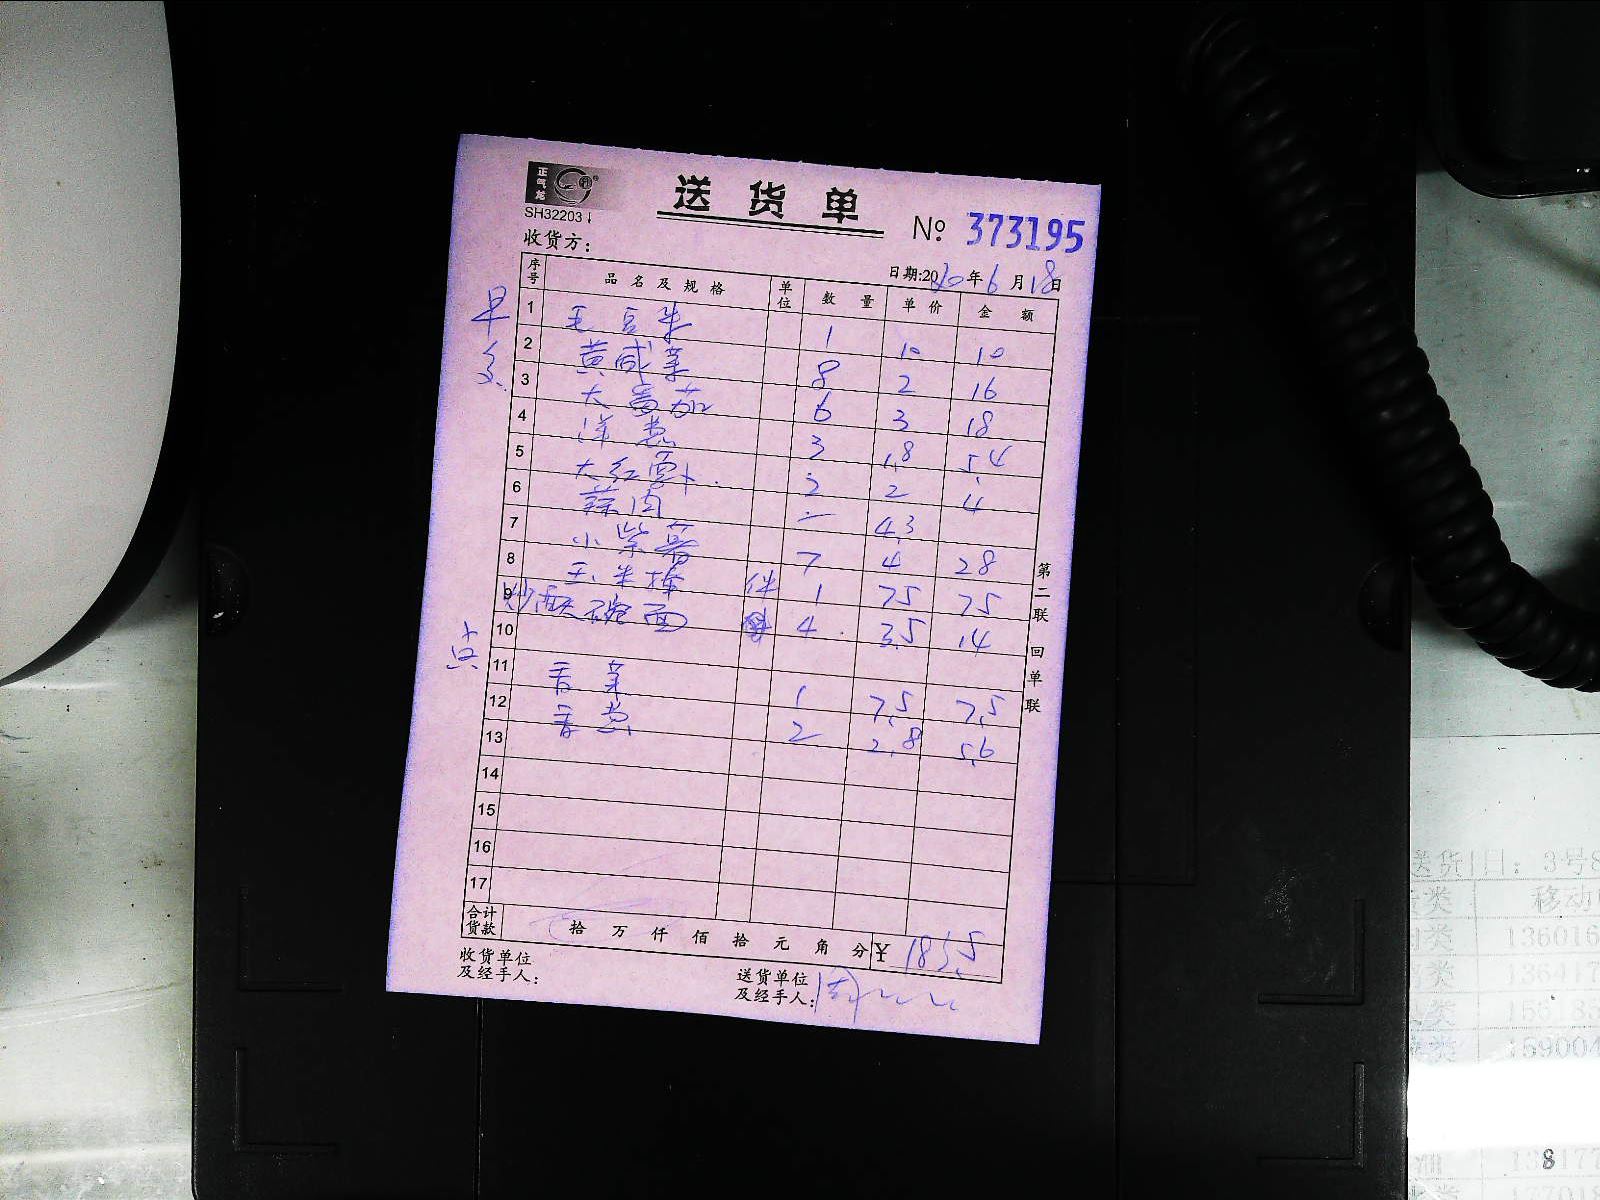 正气龙
SH32203
送货单
№ 373195
收货方：
日期:2020年6月18日
序号 品名及规格 单位 数量 单价 金额
早
点
1 毛豆米 1 10 10
2 黄咸菜 8 2 16
3 大番茄 6 3 18
4 洋葱 3 1.8 5.4
5 大红萝卜 2 2 4
6 蒜肉 一 4.3
7 小紫薯 7 4 28
8 玉米棒 件 1 75 75
9 碗面 4 3.5 14
10
11 香菜 1 7.5 7.5
12 香葱 2 2.8 5.6
13
14
15
16
17
合计货款 拾万仟佰拾元角分 ¥ 183.5
收货单位及经手人：
送货单位及经手人：
第二联 回单联
送货日：3号8
类 移动
类 136016
类 136417
类 15515
类 159004